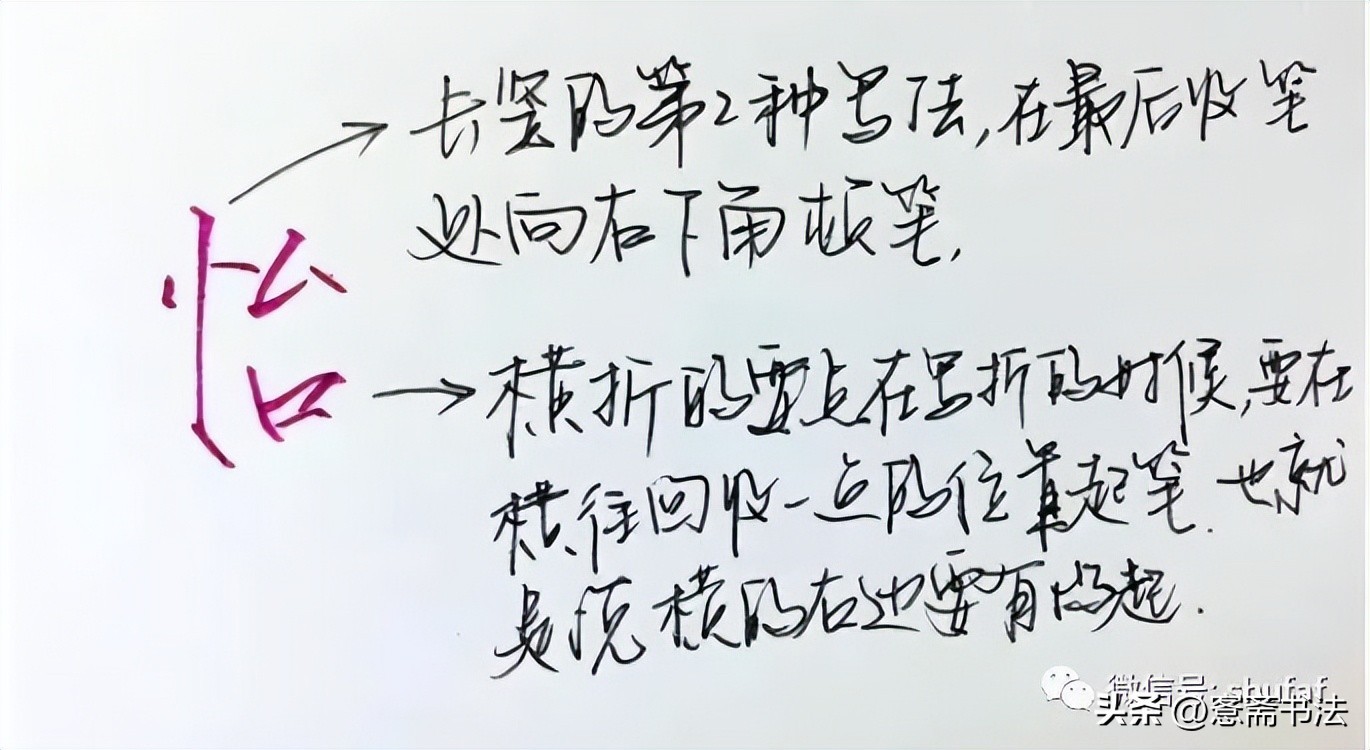 怡
长竖的第2种写法,在最后收笔
处向右下角顿笔.
横折的要点在写折的时候,要在
横往回收一点的位置起笔.也就
是说横的右边要有凸起.
微信号: shufaf
头条 @愙斋书法